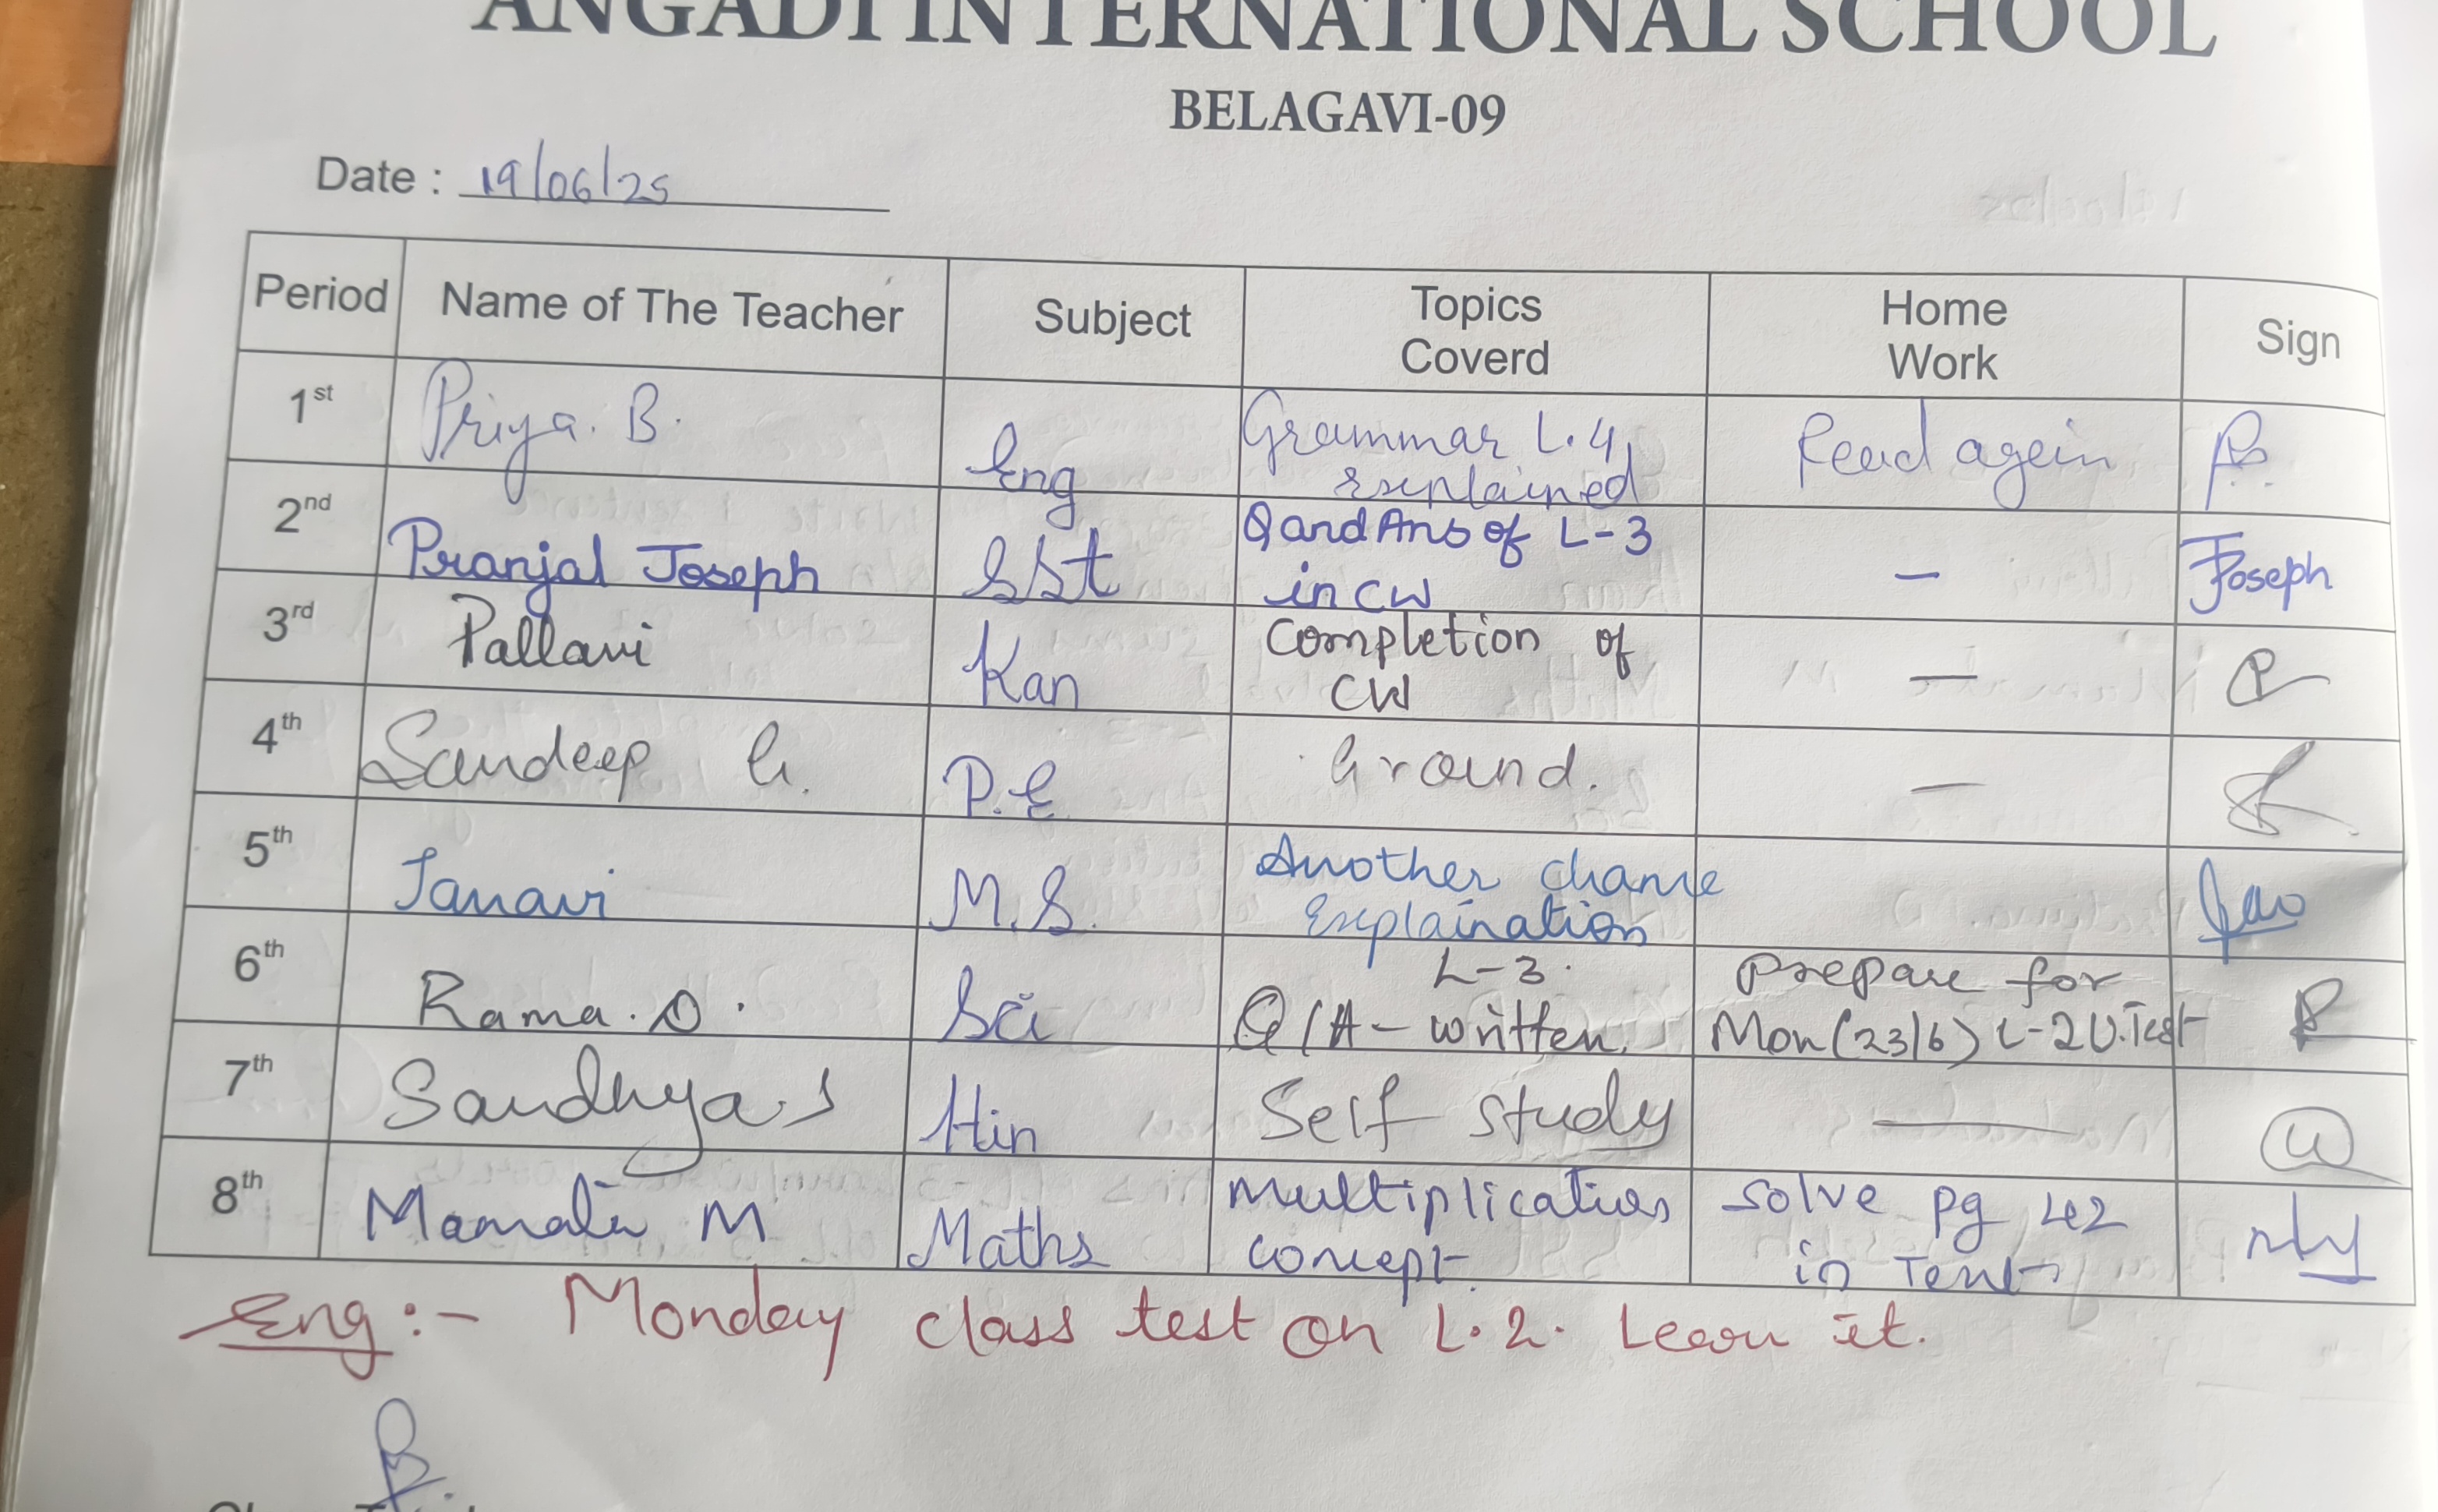 ANGADI INTERNATIONAL SCHOOL
BELAGAVI-09
Date : 19/06/25
Period Name of The Teacher Subject Topics Coverd Home Work Sign
1st Priya. B. Eng Grammar L.4 explained Read again
2nd Pranjal Joseph SSt Q and Ans of L-3 in CW - Joseph
3rd Pallavi Kan Completion of CW —
4th Sandeep G. P.E Ground. —
5th Janavi M.S. Another chance Explaination
6th Rama. D. Sci L-3. Q/A - written. Prepare for Mon (23/6) L-2 U.Test
7th Sandhya.S Hin Self study —
8th Mamata M Maths Multiplication concept. Solve pg 42 in Text
Eng :- Monday class test on L.2. Learn it.